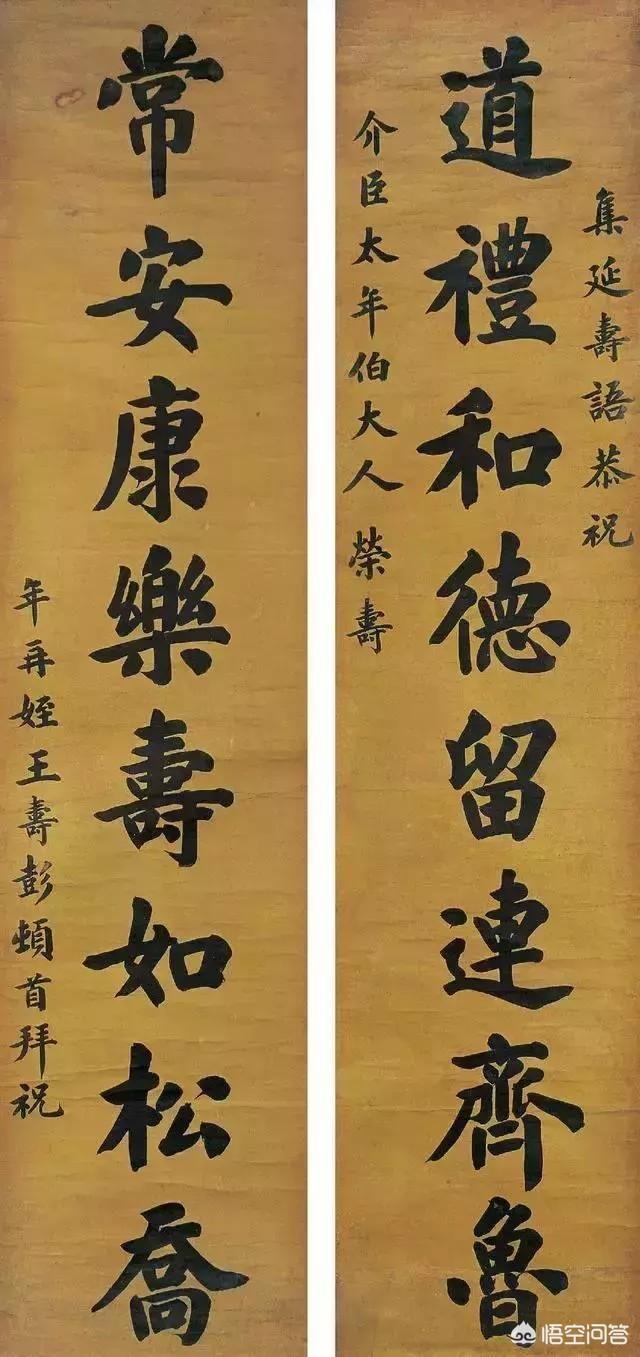 集延壽語恭祝
道禮和德留連齊魯
介臣太年伯大人榮壽
常安康樂壽如松喬
年再姪王壽彭頓首拜祝
悟空问答